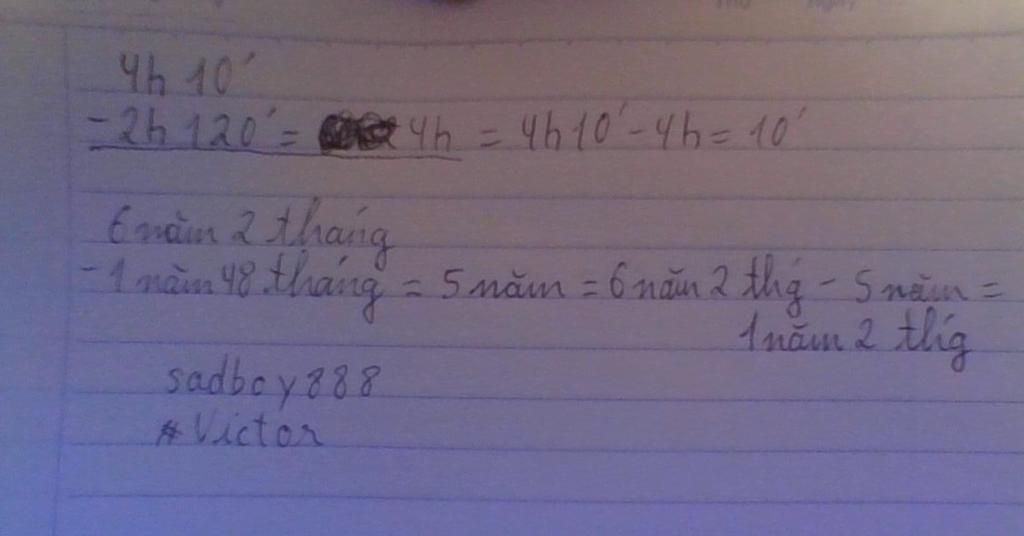 4h 10'
- 2h 120' = 4h = 4h10' - 4h = 10'
6 năm 2 tháng
- 1 năm 48 tháng = 5 năm = 6 năm 2 thg - 5 năm =
1 năm 2 thg
sadboy888
#Victor